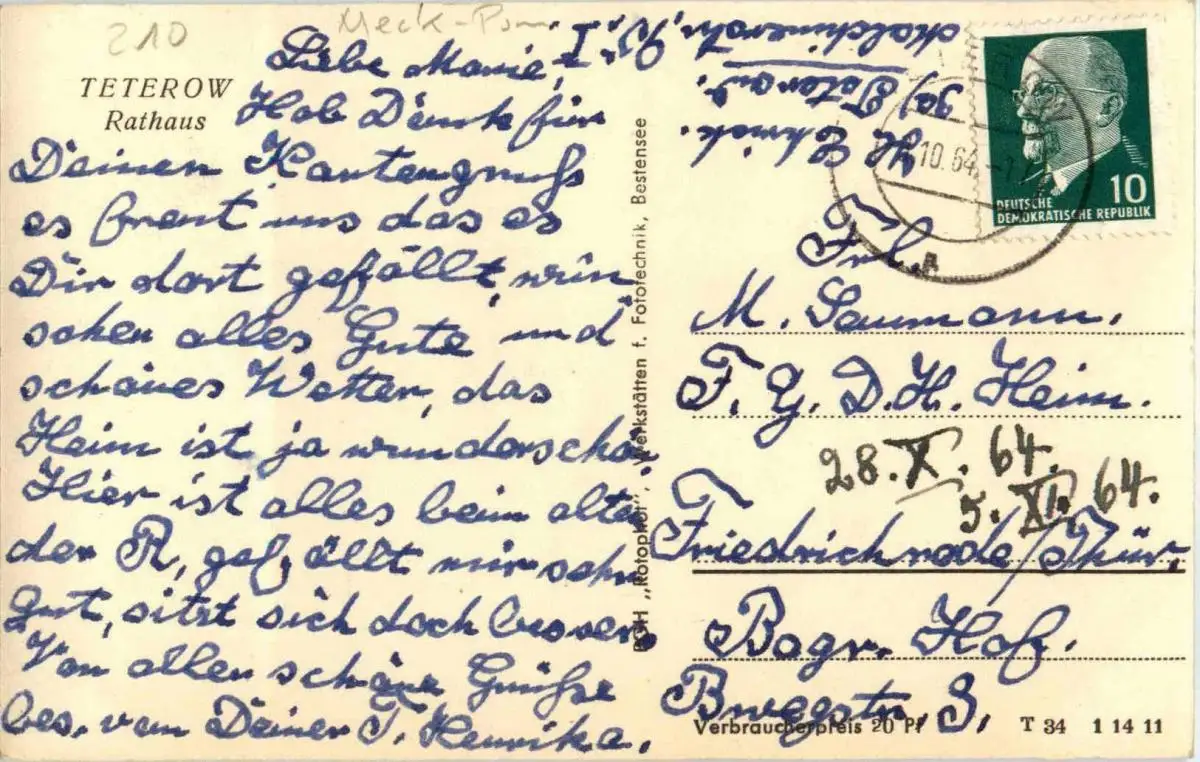 210
Meck-Pom
TETEROW
Rathaus
Liebe Manie,
Hab Dank für
Deinen Kartengruß
es freut uns das es
Dir dort gefällt, wün
schen alles Gute und
schönes Wetter, das
Heim ist ja wunderschön
Hier ist alles beim alten
der R, gefällt mir sehr
Gut, sitzt sich doch besser
Von allen schöne Grüße
bes. von Deiner T. Henrika.
PGH „Rotophot", Werkstätten f. Fototechnik, Bestensee
Teterow.
Malchinerstr.
10.64
10
DEUTSCHE
DEMOKRATISCHE REPUBLIK
Frl.
M. Saumann.
F. G. D. H. Heim.
28. X. 64.
5. XI. 64.
Friedrichrode/Thür.
Bagr. Hof.
Verbraucherpreis 20 Pf
T 34 1 14 11